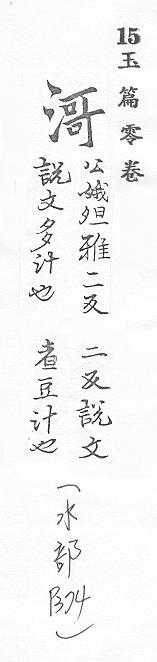 15玉篇零卷
渮
公娥 㫜雅二反 二反說文
說文多汁也 煮豆汁也
(水部 B94)